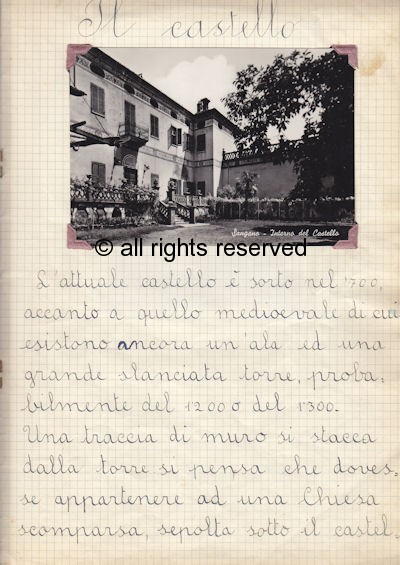 Il castello
Sangano - Interno del Castello
© all rights reserved
L'attuale castello è sorto nel '700,
accanto a quello medioevale di cui
esistono ancora un'ala ed una
grande slanciata torre, proba=
bilmente del 1200 o del 1300.
Una traccia di muro si stacca
dalla torre si pensa che doves=
se appartenere ad una Chiesa
scomparsa, sepolta sotto il castel=